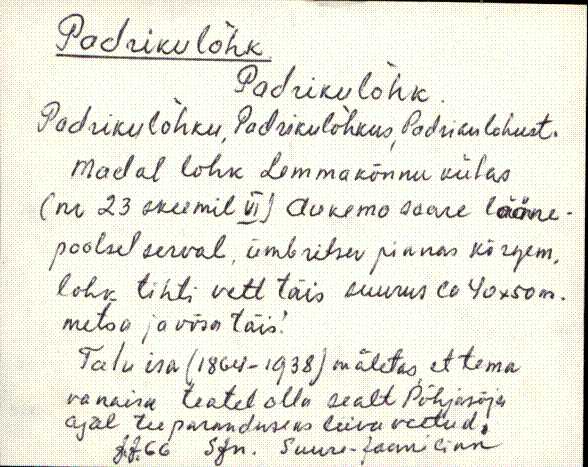 Padrikulõhk
Padrikulõhk.
Padrikulõhku, Padrikulõhkus, Padrikulohust.
Madal lohk Lemmakõnnu külas
(nr 23 skeemil VI) Aukemo saare lääne-
poolsel serval, ümbritsev pinnas kõrgem,
lohk tihti vett täis suurus ca 40x50m.
metsa ja võsa täis!
Talu isa (1864-1938) mäletas et tema
vanaisa teatel olla sealt Põhjasõja
ajal tee paranduseks liiva veetud.
66 Sjn. Suure-Jaani